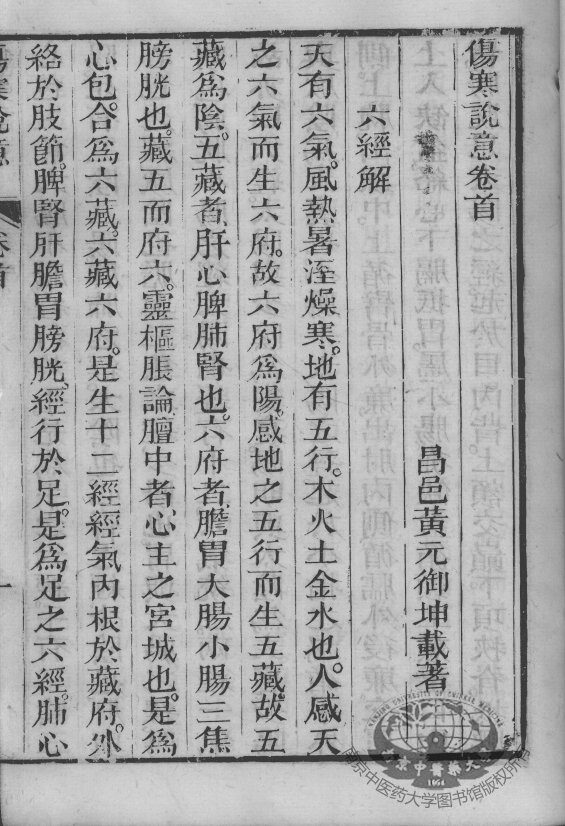 傷寒說意卷首
昌邑黃元御坤載著
六經解
天有六氣。風熱暑溼燥寒。地有五行。木火土金水也。人感天
之六氣而生六府。故六府為陽。感地之五行而生五藏。故五
藏為陰。五藏者肝心脾肺腎也。六府者膽胃大腸小腸三焦
膀胱也。藏五而府六。靈樞脹論膻中者。心主之宮城也。是為
心包。合為六藏。六藏六府。是生十二經。經氣內根於藏府。外
絡於肢節。脾腎肝膽胃膀胱。經行於足。是為足之六經。肺心
傷寒說意
卷首
一
南京中医药大学图书馆版权所有
NANJING UNIVERSITY OF CHINESE MEDICINE
南京中醫藥大學
1954